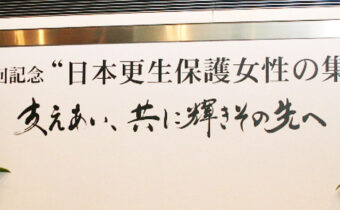 回記念 “日本更生保護女性の集
支えあい、共に輝きその先へ